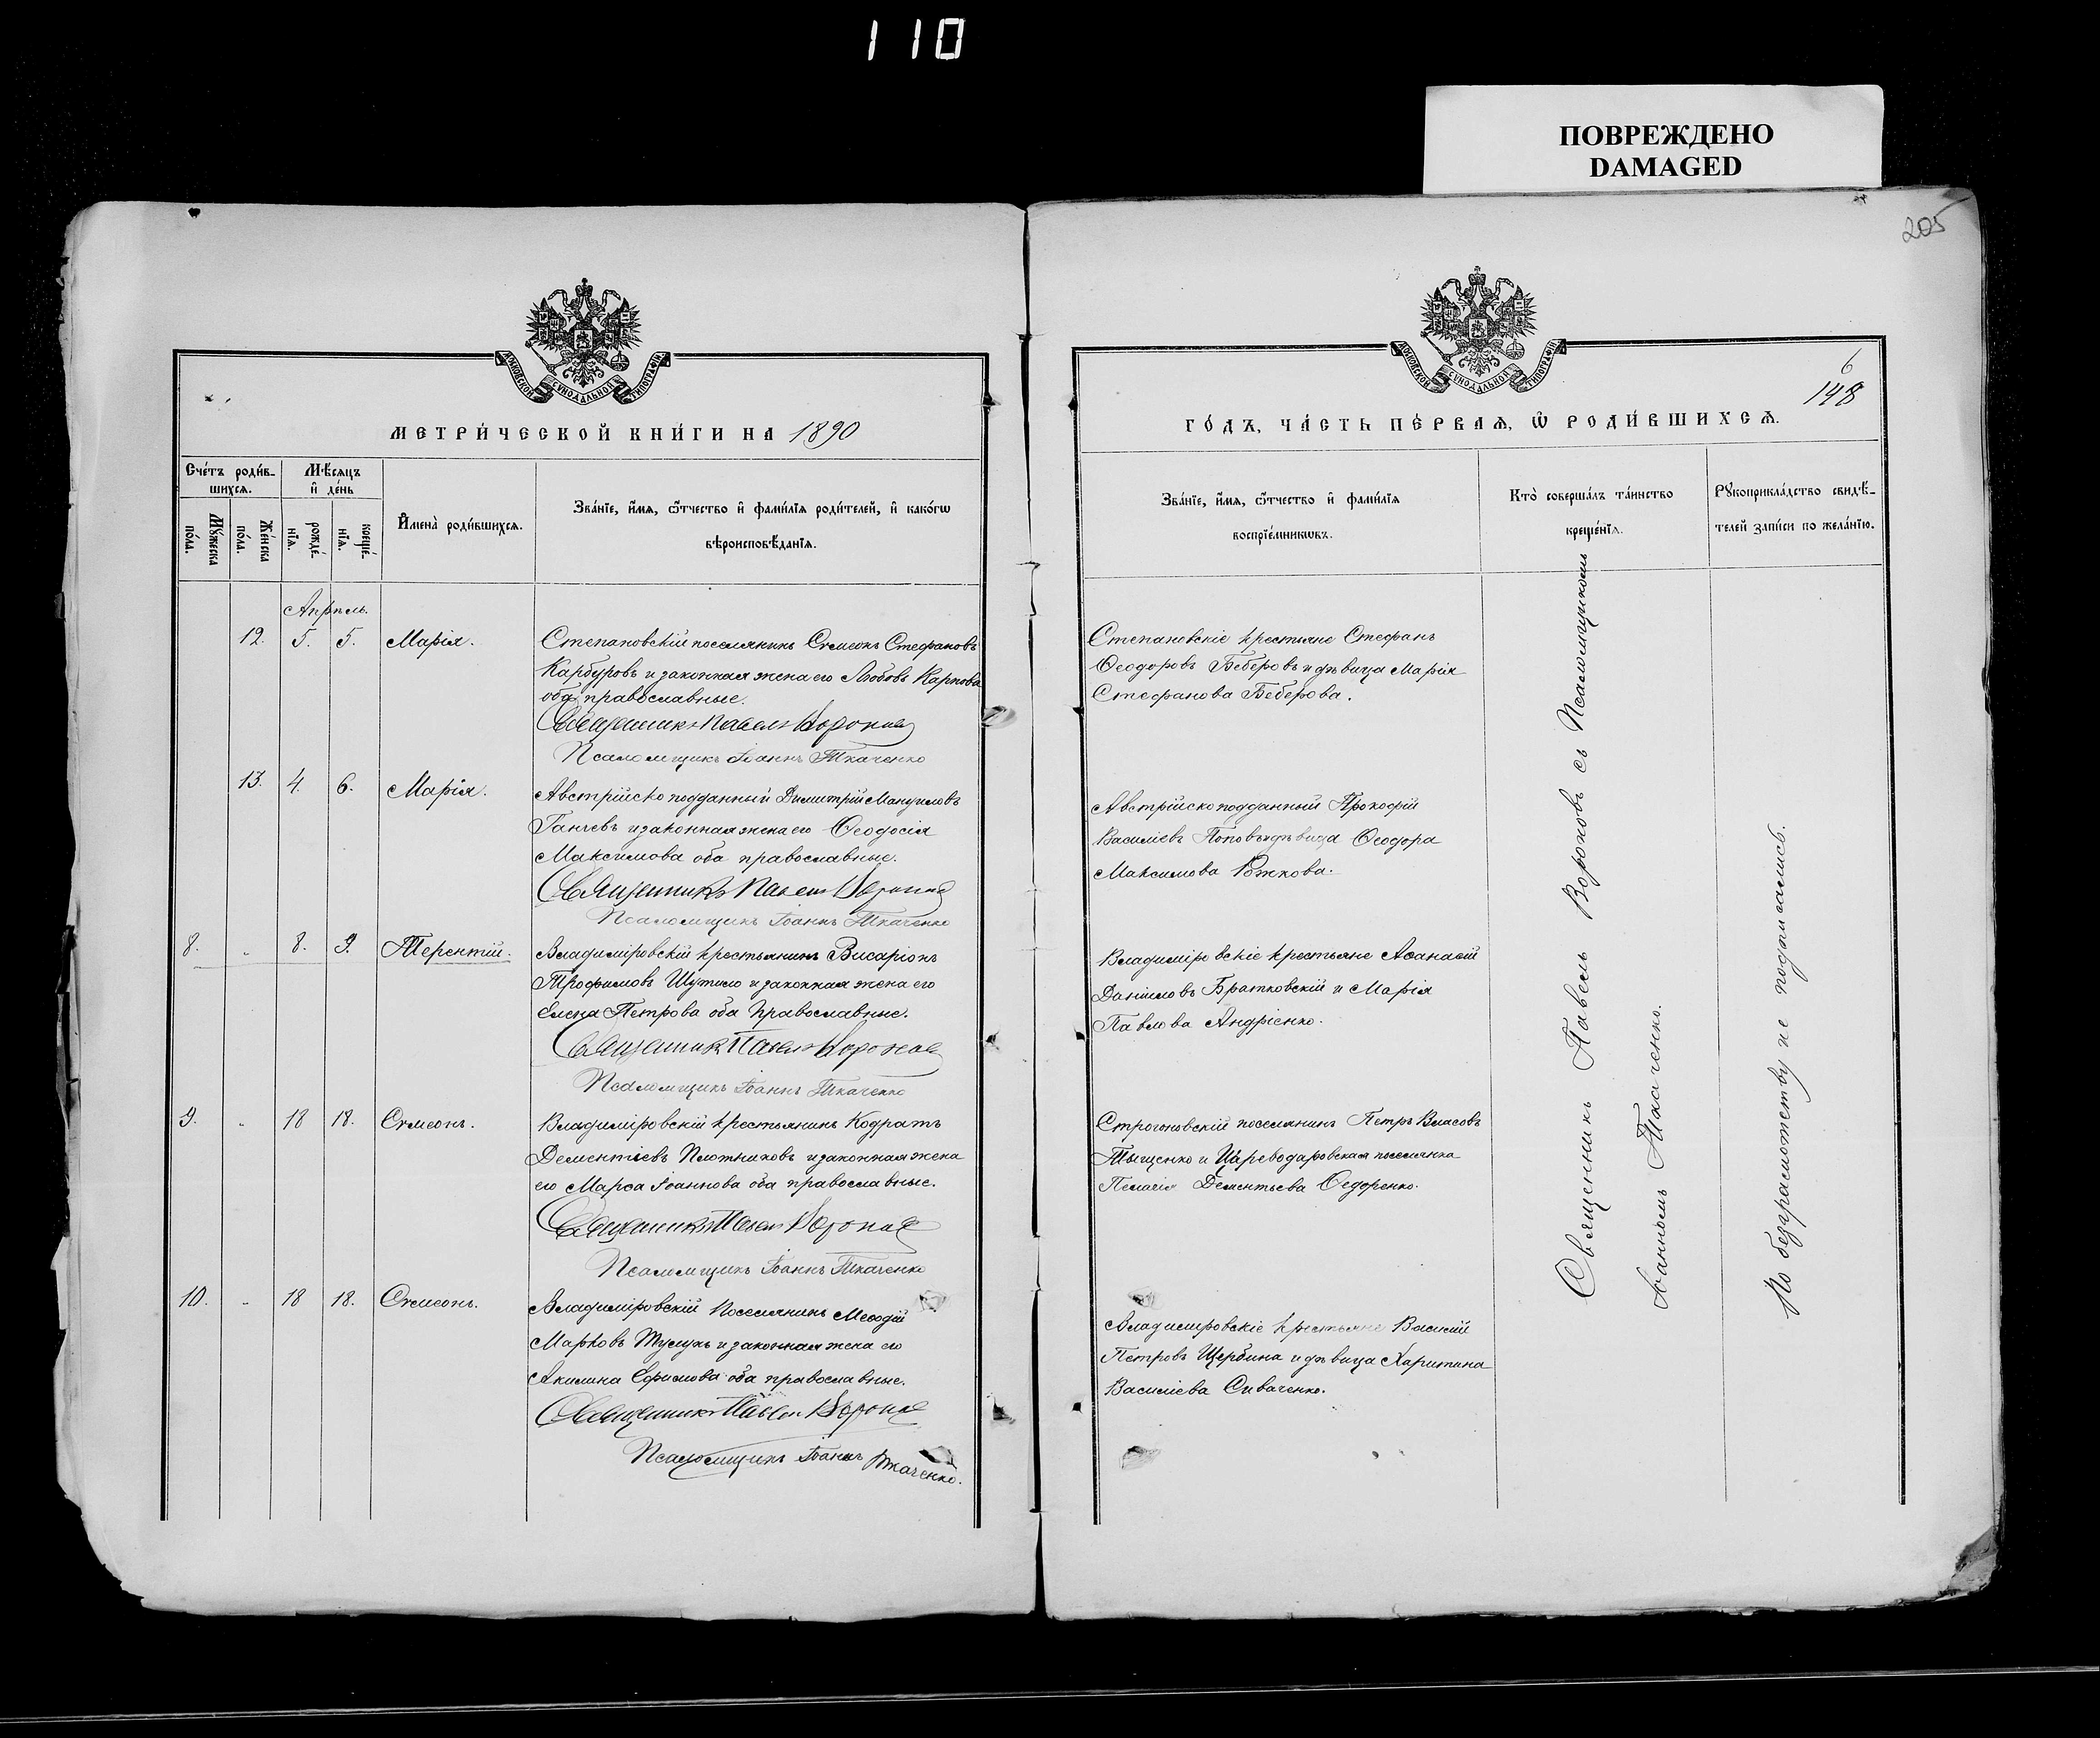 110
ПОВРЕЖДЕНО
DAMAGED
205
МОСКОВСКОЙ СѴНОДАЛЬНОЙ ТИПОГРАФІИ
МЕТРИ́ЧЕСКОЙ КНИ́ГИ НА 1890
Сче́тъ роди́в-
шихсѧ.
Мѣ́сяцъ
и҆ де́нь
Мꙋ́жеска
по́ла.
Же́нска
по́ла.
рожде́-
нїѧ.
креще́-
нїѧ.
И҆мена̀ роди́вшихсѧ.
Зва́нїе, и҆́мѧ, ѻ҆́тчество и҆ фами́лїѧ роди́телей, и҆ како́гѡ
вѣроисповѣ́данїѧ.
Апрѣль.
12. 5. 5. Марія.
Степановскій поселянинъ Сѵмеонъ Стефановъ
Карбуровъ и законная жена его Любовь Карпова
оба православные.
Священникъ Павелъ Вороновъ
Псаломщикъ Іоаннъ Ткаченко
13. 4. 6. Марія.
Австрійско подданный Димитрій Мануиловъ
Ганчевъ и законная жена его Ѳеодосія
Максимова оба православные.
Священникъ Павелъ Вороновъ
Псаломщикъ Іоаннъ Ткаченко
8. „ 8. 9. Терентій.
Владиміровскій крестьянинъ Висаріонъ
Трофимовъ Шутило и законная жена его
Елена Петрова оба православные.
Священникъ Павелъ Вороновъ
Псаломщикъ Іоаннъ Ткаченко
9. „ 18 18. Сѵмеонъ.
Владиміровскій крестьянинъ Кодратъ
Дементіевъ Плотниковъ и законная жена
его Марѳа Іоаннова оба православные.
Священникъ Павелъ Вороновъ
Псаломщикъ Іоаннъ Ткаченко
10. „ 18 18. Сѵмеонъ.
Владиміровскій поселянинъ Меѳодій
Марковъ и законная жена его
Акилина Ефимова оба православные.
Священникъ Павелъ Вороновъ
Псаломщикъ Іоаннъ Ткаченко.
МОСКОВСКОЙ СѴНОДАЛЬНОЙ ТИПОГРАФІИ
6
148
ГО́ДЪ, ЧА́СТЬ ПЕ́РВАѦ, Ѡ҆ РОДИ́ВШИХСѦ.
Зва́нїе, и҆́мѧ, ѻ҆́тчество и҆ фами́лїѧ
воспрїе́мникѡвъ.
Кто̀ соверша́лъ та́инство
креще́нїѧ.
Рꙋкоприкла́дство свидѣ́-
телей за́писи по жела́нїю.
Степановскіе крестьяне Стефанъ
Ѳеодоровъ Беберовъ и дѣвица Марія
Стефанова Беберова.
Австрійскоподданный Прокофій
Василіевъ Поповъ и дѣвица Ѳеодора
Максимова Рожкова.
Владиміровскіе крестьяне Аѳанасій
Даніиловъ Братковскій и Марія
Павлова Андріенко.
Строгоновскій поселянинъ Петръ Власовъ
Тыщенко и Цареводаровская поселянка
Пелагія Дементьева Ѳедоренко.
Владиміровскіе крестьяне Василій
Петровъ Щербина и дѣвица Харитина
Василіева Сиваченко.
Священникъ Павелъ Вороновъ съ Псаломщикомъ
Іоанномъ Ткаченко.
По безграмотству не подписались.